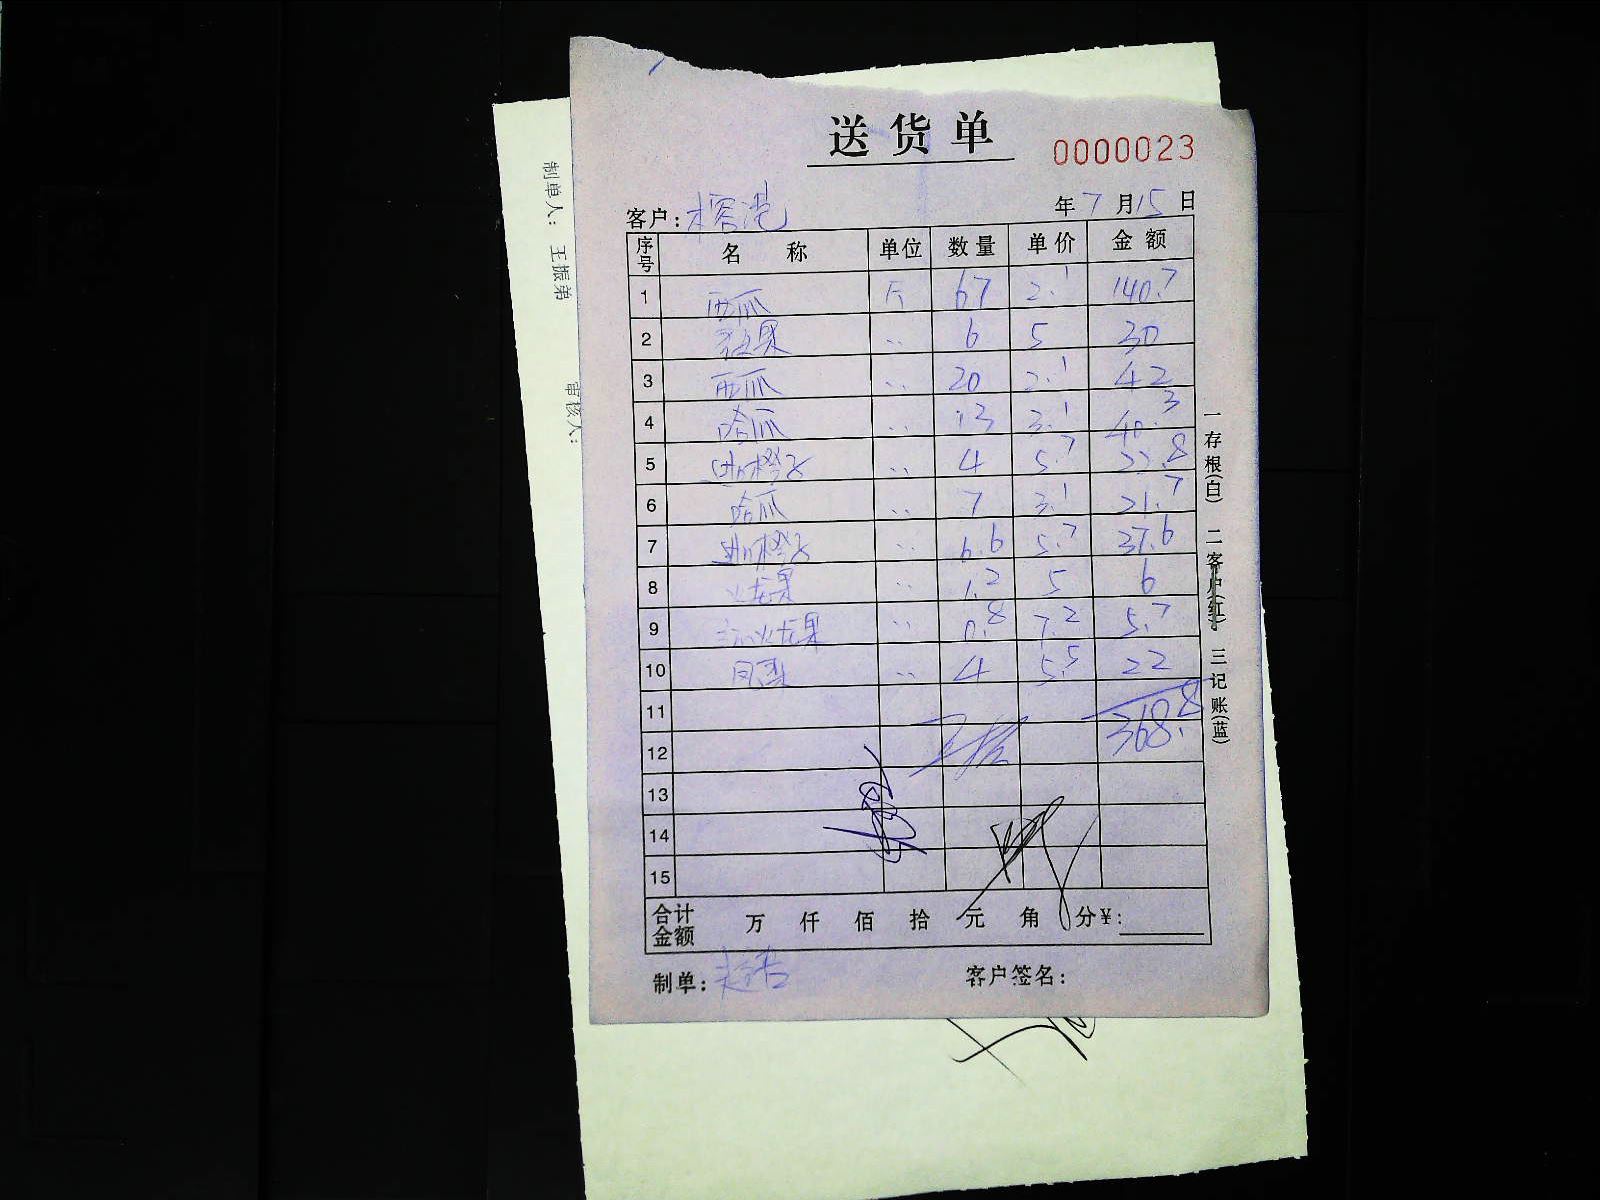 送货单 0000023
客户: 榕港 年 7 月 15 日
序号 名称 单位 数量 单价 金额
1 西瓜 斤 67 2.1 140.7
2 果 ‥ 6 5 30
3 西瓜 ‥ 20 2.1 42
4 哈瓜 ‥ 13 3.1 40.3
5 进口橙子 ‥ 4 5.7 22.8
6 哈瓜 ‥ 7 3.1 21.7
7 进口橙子 ‥ 6.6 5.7 37.6
8 火龙果 ‥ 1.2 5 6
9 火龙果 ‥ 0.8 7.2 5.7
10 凤梨 ‥ 4 5.5 22
11
368.8
12
13
14
15
合计金额 万 仟 佰 拾 元 角 分 ¥:
制单: 客户签名:
一存根(白) 二客户(红) 三记账(蓝)
制单人: 王振弟 审核人: